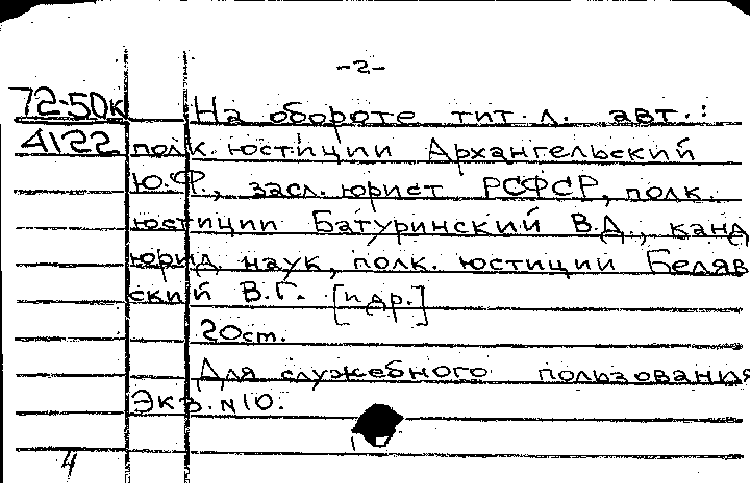 -2-
72-50к На обороте тит. л. авт.:
4122 полк. юстиции Архангельский
Ю.Ф., засл. юрист РСФСР, полк.
юстиции Батуринский В.Д., канд
юрид наук, полк. юстиции Беляв
ский В.Г. [и др.]
20 ст.
Для служебного пользования
Экз. N 10.
4